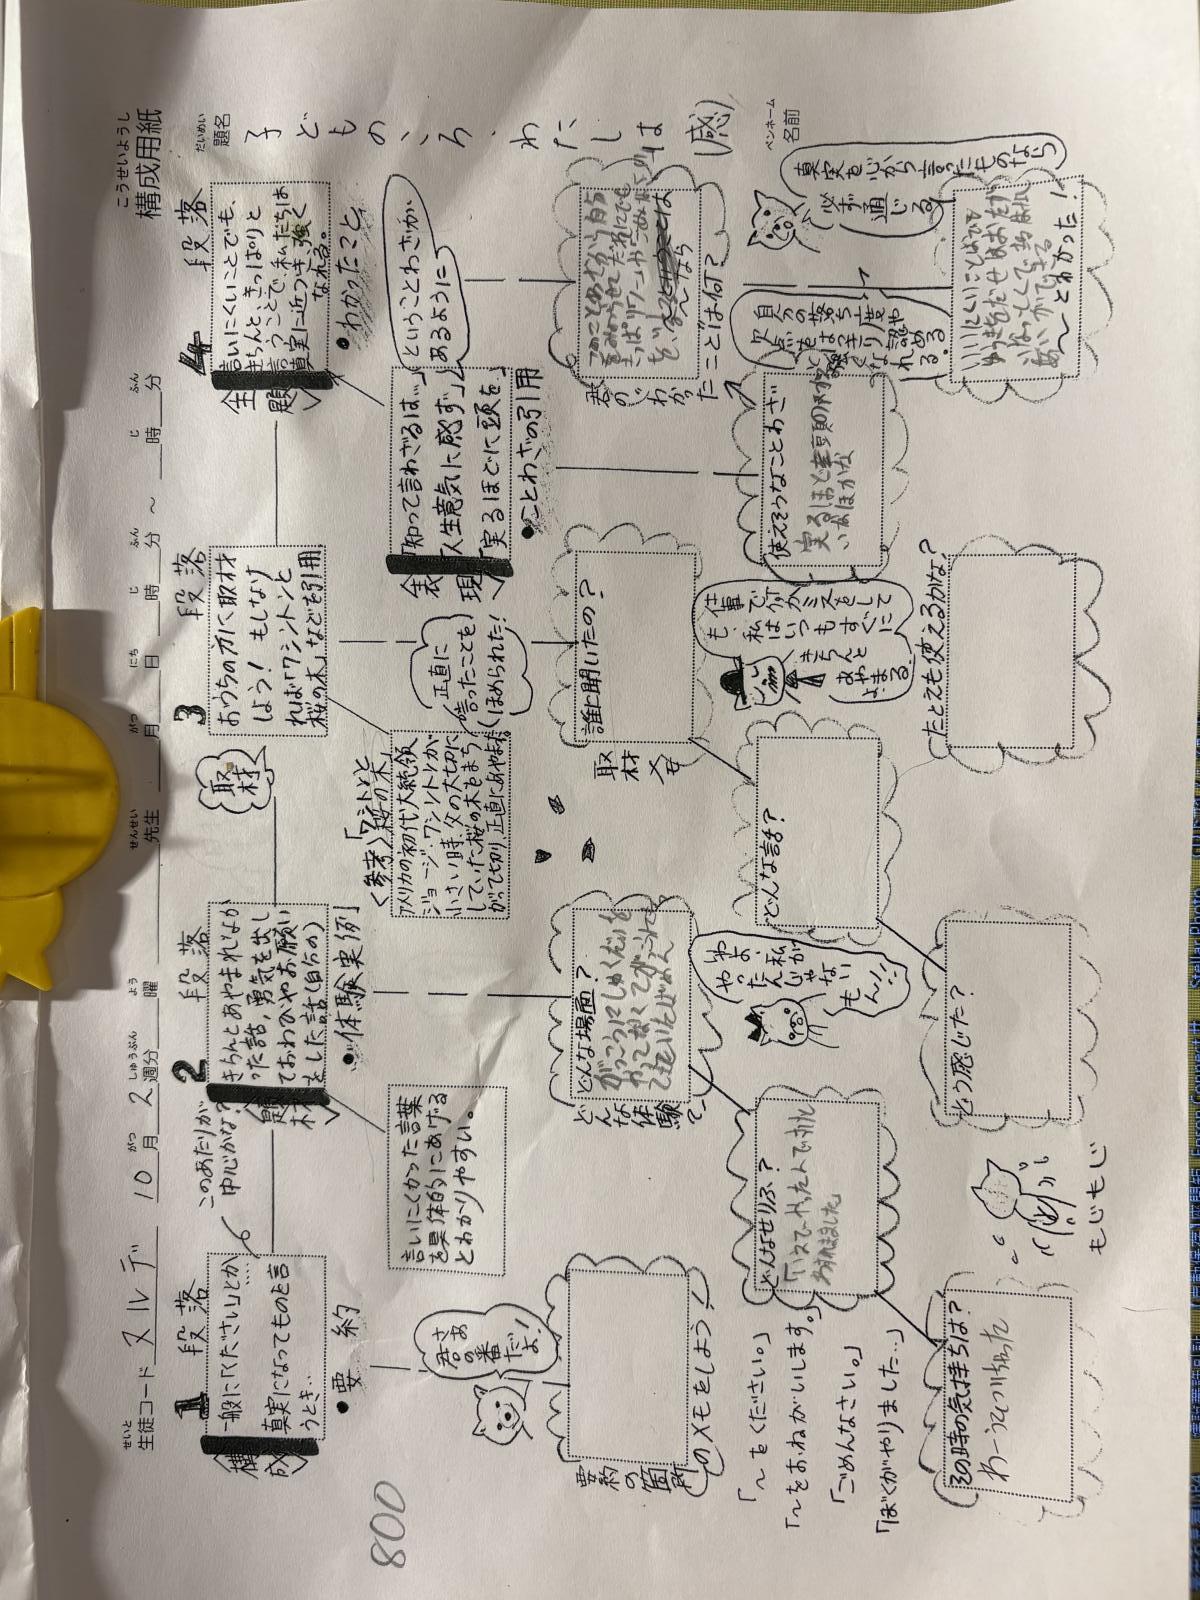 構成用紙
こうせいようし
生徒コード ヌルデ 10月 2週分 曜 先生 月 日 時 分 ～ 時 分
題名 子どものころ、わたしは (感)
ペンネーム
名前
1 段落
〈構成〉
一般に「ください」とか
真実になってものを言
うとき…
•要約
このあたりが
中心かな?
2 段落
〈題材〉
きちんとあやまれなか
った話，勇気を出し
ておわびやお願い
をした話(自分の)
•体験実例
言いにくかった言葉
を具体的にあげる
とわかりやすい。
取材
3 段落
おうちの方に取材
しよう！ もしなけ
れば「ワシントンと
桜の木」などを引用
〈参考〉「ワシントンと
桜の木」
アメリカの初代大統領
ジョージ・ワシントンが
小さい時、父の大切に
していた桜の木をまち
がって切り、正直にあやまった
正直に
言ったことを
ほめられた!
4 段落
〈主題〉
言いにくいことでも、
きちんと、きっぱりと
言うことで私たちは
真実に近づき、強く
なれる。
•わかったこと
〈表現〉
「知って言わざるは…」
「人生意気に感ず」
「実るほどに頭を」
•ことわざの引用
ということわざが
あるように
さあ
君の番
だよ!
要約の箇所
のメモをしよう!
「～をください。」
「～をおねがいします。」
「ごめんなさい。」
「ぼくがやりました…」
どんな体験
どんな場面?
がっこうにしゅくだいを
やってなくて
どんなせりふ?
わすれました
その時の気持ちは?
わーうそついちゃった
もじもじ
やったの
私じゃない
もん!!
取材メモ
誰に聞いたの?
どんな話?
どう感じた?
仕事で何かミスをして
も、私はいつもすぐに
きちんと
あやまるよ。
君の「わかった
こと」は何?
使えそうなことわざ
実るほど頭の下がる
いなほかな
たとえも使えるかな?
自分の落ち度や
欠点をはっきり認める
と強くなれる。
真実を心から言ったものなら
必ず通じる
いいにくいことばでも
ゆうきをだせばおたがい
～とわかった！
800